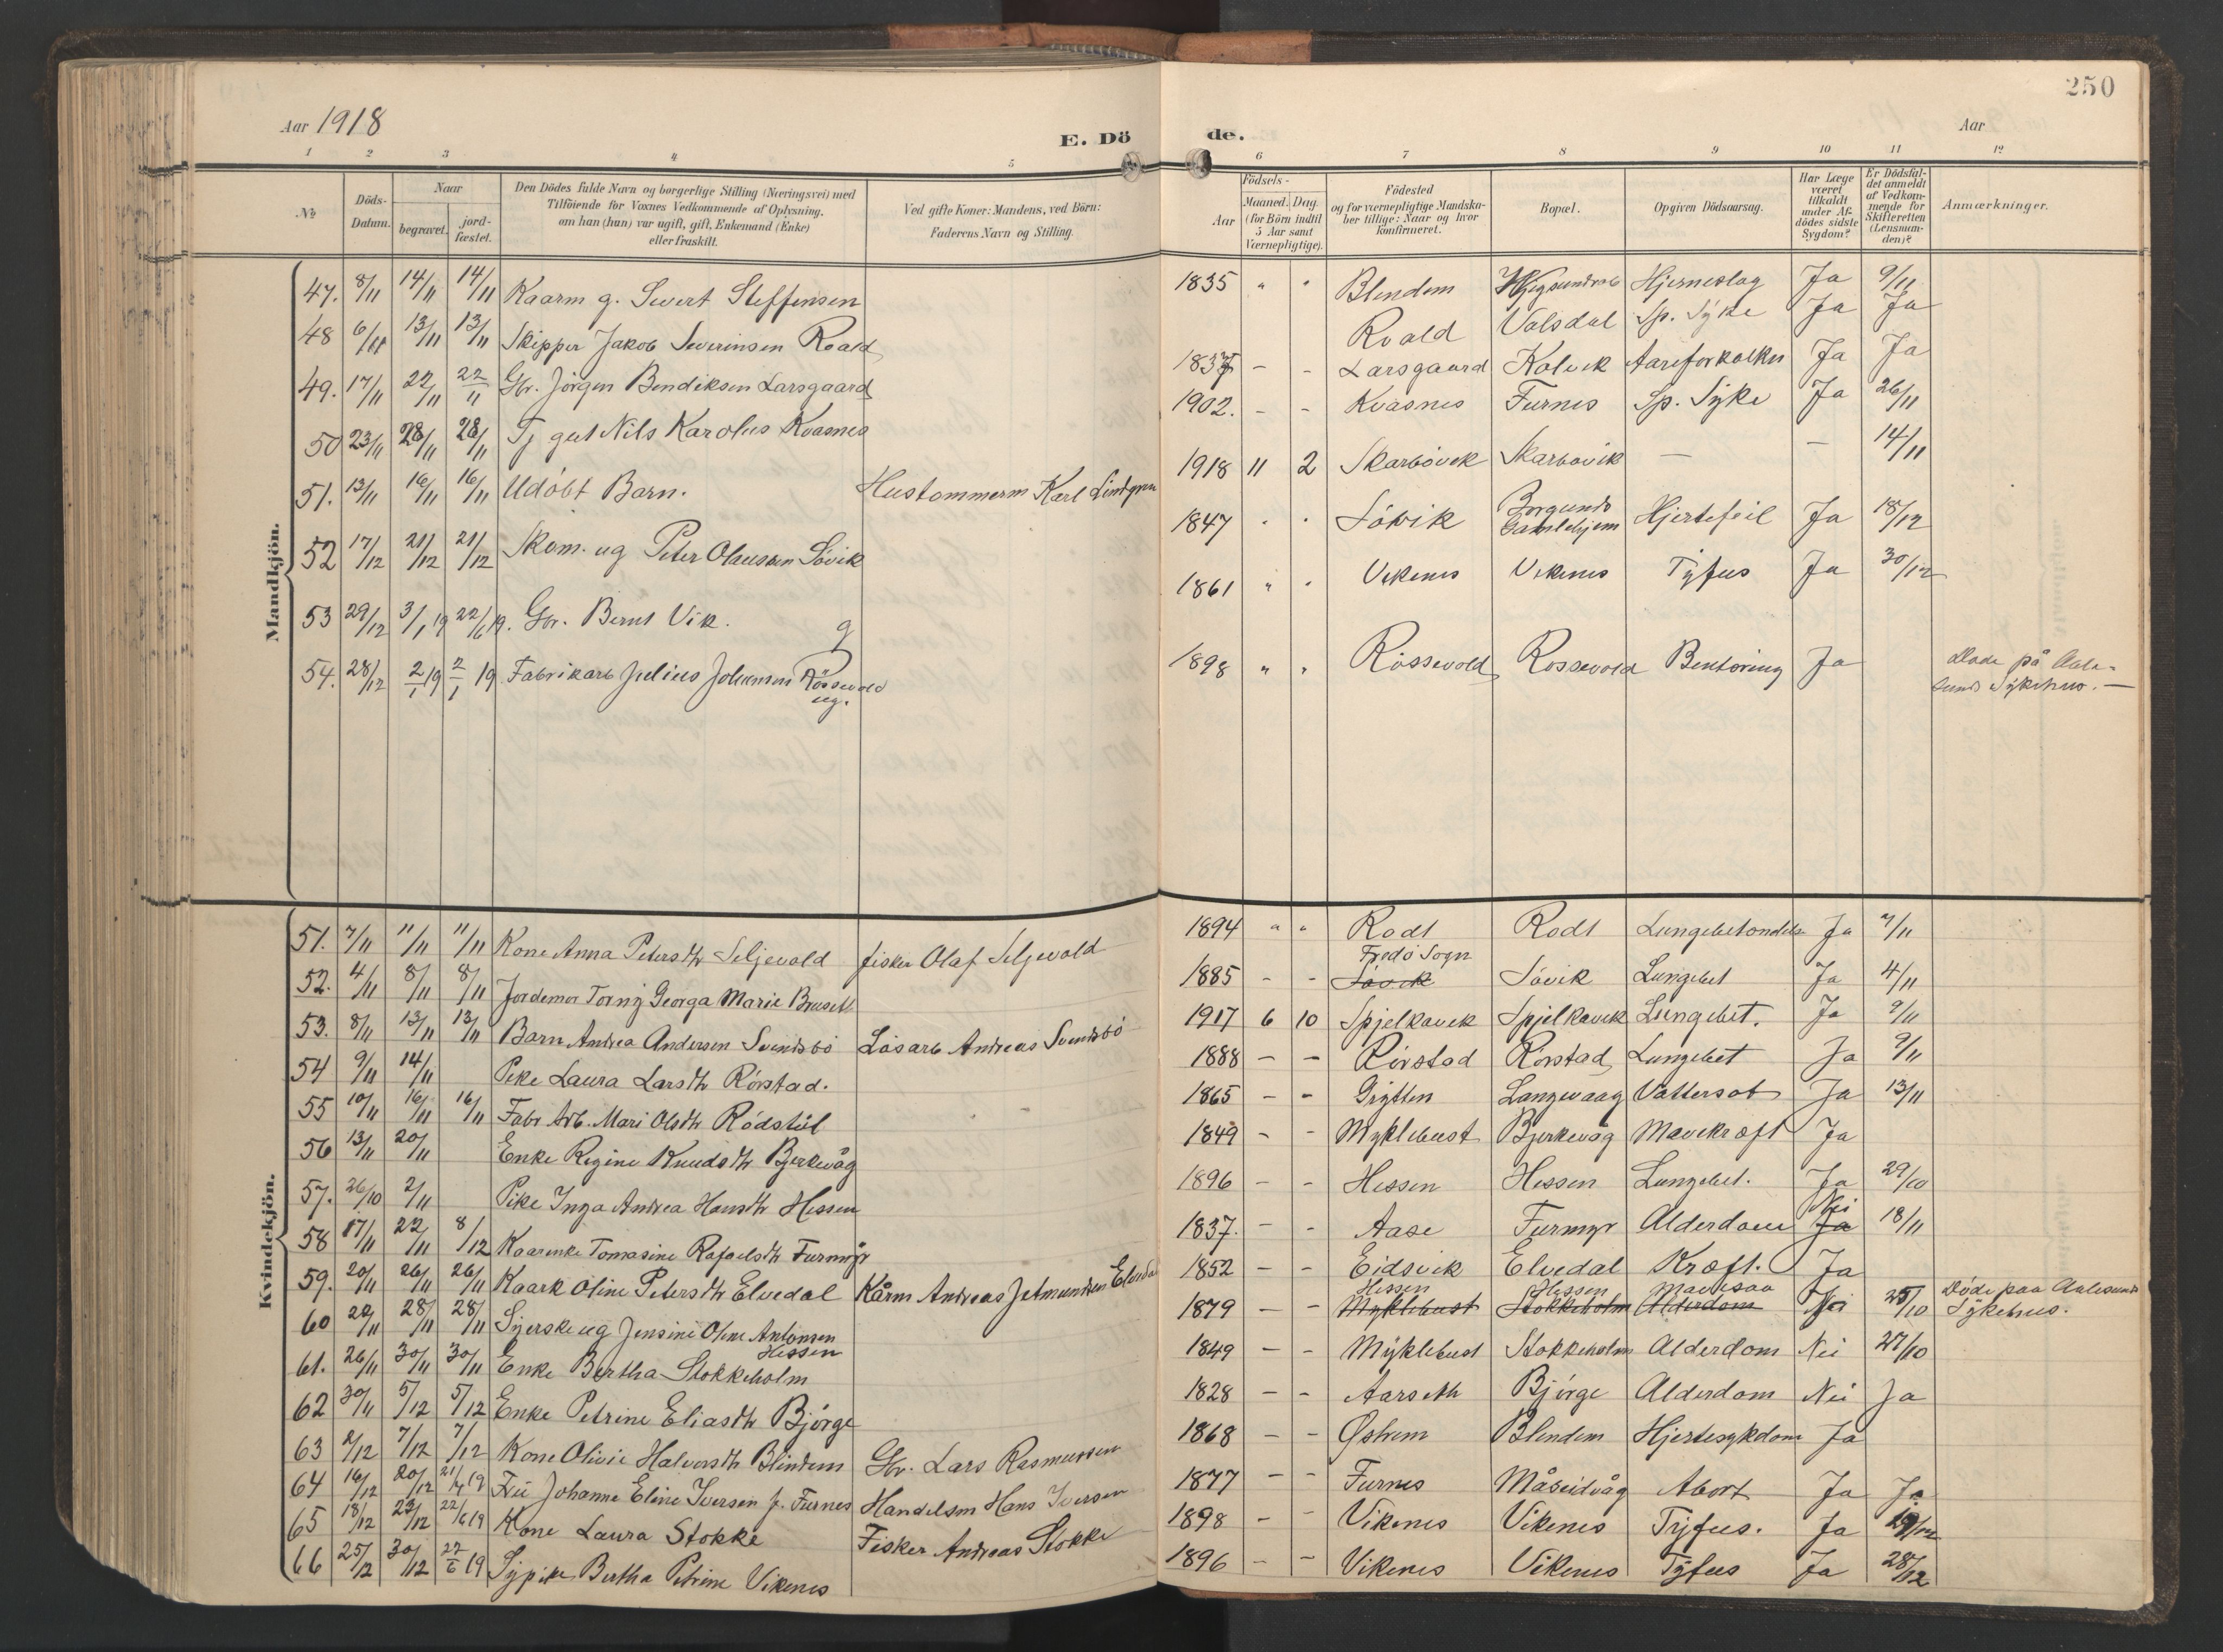 250
Aar 1918
E. Dö de.
Aar
1 2 3 4 5 6 7 8 9 10 11 12
№
Döds-Datum.
Naar
begravet.
jord-fæstet.
Den Dödes fulde Navn og borgerlige Stilling (Næringsvei) med
Tilföiende for Voxnes Vedkommende af Oplysning,
om han (hun) var ugift, gift, Enkemand (Enke)
eller fraskilt.
Ved gifte Koner: Mandens, ved Börn:
Faderens Navn og Stilling.
Födsels-
Aar
Maaned. Dag.
(for Börn indtil
5 Aar samt
Værnepligtige).
Födested
og for værnepligtige Mandska-
ber tillige: Naar og hvor
konfirmeret.
Bopæl.
Opgiven Dödsaarsag.
Har Læge
været
tilkaldt
under Af-
dödes sidste
Sygdom?
Er Dödsfal-
det anmeldt
af Vedkom-
mende for
Skifteretten
(Lensman-
den)?
Anmærkninger.
Mandkjön.
47. 8/11 14/11 14/11 Kaarm g. Sivert Steffensen 1835 " " Blindem Hjerneslag Ja 9/11
48 6/11 13/11 13/11 Skipper Jakob Severinsen Roald Roald Valsdal Sp. Syke Ja Ja
49. 17/11 22/11 22/11 Gbr. Jörgen Bendiksen Larsgaard 1837 - - Larsgaard Kalvik Aareforkalkn Ja Ja
50 23/11 28/11 28/11 Tj gut Nils Karolus Kvasnes 1902. - - Kvasnes Furnes Sp. Syke Ja 26/11
51. 13/11 16/11 16/11 Udöbt Barn. Hustømmerm Karl Lindgren 1918 11 2 Skarbövik Skarbövik — — 14/11
52 17/12 21/12 21/12 Skom. ug Peter Olaussen Sövik 1847 " " Sövik Borgunds Gamlehjem Hjertefeil Ja 18/12
53 29/12 3/1 19 22/6 19. Gbr. Bernt Vik. g 1861 " " Vikenes Vikenes Tyfus Ja 30/12
54. 28/12 2/1 19 2/1 19 Fabrikarb Julius Johansen Rössevold ug. 1898 " " Rössevold Rossevold Ja döde på Aale-
sunds Sykehus. —
Kvindekjön.
51. 7/11 11/11 11/11 Kone Anna Petersdtr Seljevold fisker Olaf Seljevold 1894 " " Rödt Rödt Lungebetændelse Ja 7/11
52. 4/11 8/11 8/11 Jordemor Torny Georga Marie Bruset 1885 - - Fredö Sogn Sövik Sövik Lungebet Ja 4/11
53. 8/11 13/11 13/11 Barn Andrea Andersen Svendsbö Lösarb Andreas Svendsbö 1917 6 10 Spjelkavik Spjelkavik Lungebet. Ja 9/11
54 9/11 14/11 Pike Laura Larsdtr Rörstad. 1888 - - Rörstad Rörstad Lungebet Ja 9/11
55 10/11 16/11 16/11 Fabr Arb. Mari Olsdtr Rödstöl 1865 - - Grytten Langevaag Vattersot Ja 13/11
56 13/11 20/11 Enke Regine Knudsdtr Bjerkevåg 1849 - - Myklebust Bjerkevåg Mavekræft Ja
57. 26/10 2/11 Pike Inga Andrea Hansdtr Hessen 1896 - - Hessen Hessen Lungebet. Ja 29/10
58 17/11 22/11 8/12 Kaarenke Tomasine Rafaelsdtr Furmyr 1837. - - Aase Furmyr Alderdom Nei Ja 18/11
59. 20/11 26/11 26/11 Kaark Oline Petersdtr Elvedal Kårm Andreas Jetmundsen Elvedal 1852 - - Eidsvik Elvedal Kræft. Ja
60 22/11 28/11 28/11 Syerske ug Jensine Oline Antonsen Hessen 1879 - - Hessen Myklebust Hessen Stokkeholm Mavesaa Alderdom 25/10 Döde paa Aalesunds
Sykehus.
61. 26/11 30/11 30/11 Enke Bertha Stokkeholm 1849 - - Myklebust Stokkeholm Alderdom Nei 27/10
62 30/11 5/12 5/12 Enke Petrine Eliasdtr Björge 1828 - - Aarseth Björge Alderdom Nei Ja
63 2/12 7/12 7/12 Kone Olivie Halvorsdtr Blindem Gbr. Lars Rasmussen 1868 - - Østrem Blindem Hjertesykdom Ja
64 16/12 20/12 Fru Johanne Eline Iversen f. Furnes Handelsm Hans Iversen 1877 - - Furnes Måseidvåg Abort Ja Ja
65 18/12 23/12 22/6 19 Kone Laura Stokke Fisker Andreas Stokke 1898 - - Vikenes Vikenes Tyfus. Ja
66 25/12 30/12 22/6 19 Sypike Bertha Petrine Vikenes 1896 - - Vikenes Vikenes Tyfus Ja 28/12